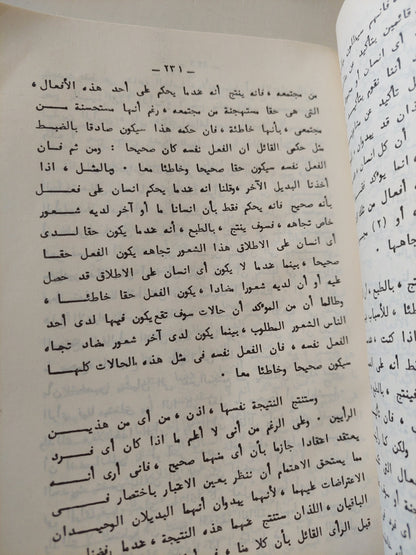 — ٢٣١ —
من مجتمعه ، فانه ينتج أنه عندما يحكم على أحد هذه الأفعال ،
التى هى حقا مستهجنة من مجتمعه ، رغم أنها مستحسنة من
مجتمعى ، بأنها خاطئة ، فان حكمه هذا سيكون صادقا بالضبط
مثل حكمى القائل ان الفعل نفسه كان صحيحا : ومن ثم فان
الفعل نفسه سيكون حقا صحيحا وخاطئا معا . وبالمثل ، اذا
أخذنا البديل الآخر ، وقلنا انه عندما يحكم انسان على فعل
بأنه صحيح فانه يحكم فقط بأن انسانا ما أو آخر لديه شعور
خاص تجاهه ، فسوف ينتج ، بالطبع ، أنه عندما يكون حقا لدى
أى انسان على الاطلاق هذا الشعور تجاهه يكون الفعل حقا
صحيحا ، بينما عندما لا يكون أى انسان على الاطلاق قد حصل
عليه أو أن لديه شعورا مضادا ، يكون الفعل حقا خاطئا ،
وطالما أن من المؤكد أن حالات سوف تقع يكون فيها لدى أحد
الناس الشعور المطلوب ، بينما يكون لدى آخر شعور مضاد تجاه
الفعل نفسه ، فان الفعل نفسه فى مثل هذه الحالات كلها
سيكون صحيحا وخاطئا معا .
وستنتج النتيجة نفسها ، اذن ، من أى من هذين
الرأيين . وعلى الرغم من أنى لا أعلم ما اذا كان أى فرد
يعتقد اعتقادا جازما بأن أى منهما صحيح ، فانى أرى أنه
مما يستحق الاهتمام أن ننظر بعين الاعتبار باختصار فى
الاعتراضات عليهما ، لأنهما يبدوان أنهما البديلان الوحيدان
الباقيان ، اللذان ستنتج عنهما هذه النتيجة ، عندما رفضنا
قبل الرأى القائل بأن كلا منا